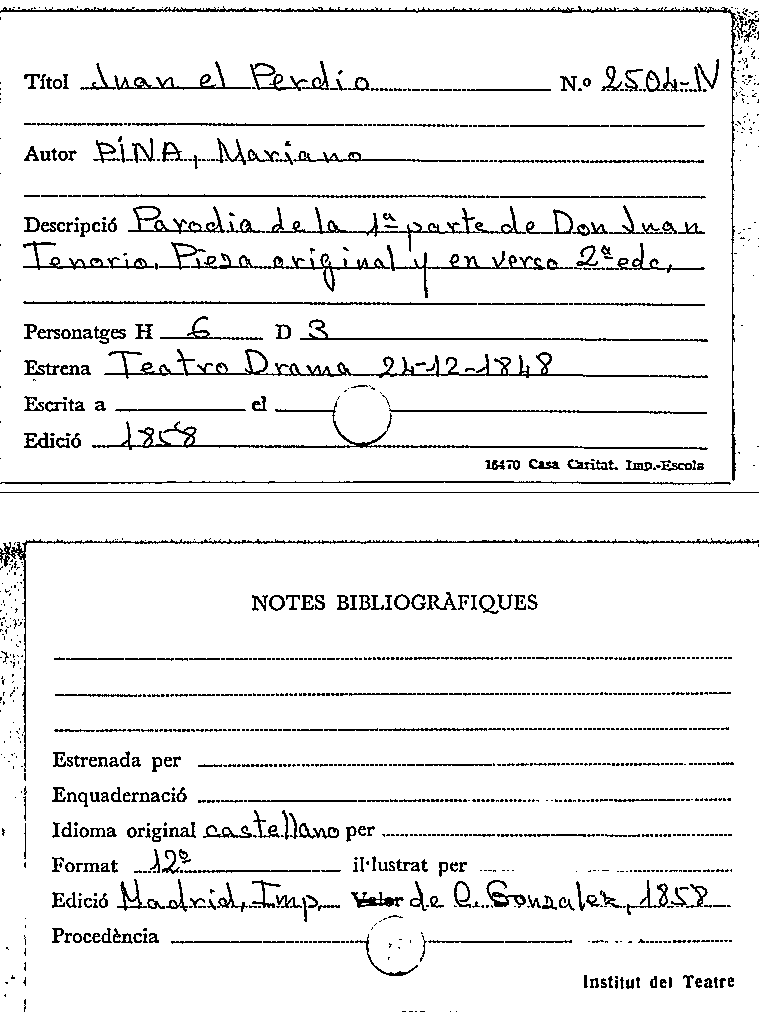 Títol Juan el Perdío N.º 2504-N
Autor PÍNA, Mariano
Descripció Parodia de la 1ª parte de Don Juan
Tenorio, Pieza original y en verso 2ª edc,
Personatges H 6 D 3
Estrena Teatro Drama 24-12-1848
Escrita a el
Edició 1858
16470 Casa Caritat. Imp.-Escola
NOTES BIBLIOGRÀFIQUES
Estrenada per
Enquadernació
Idioma original castellano per
Format 12º il·lustrat per
Edició Madrid, Imp. de C. Gonzalez, 1858
Procedència
Institut del Teatre